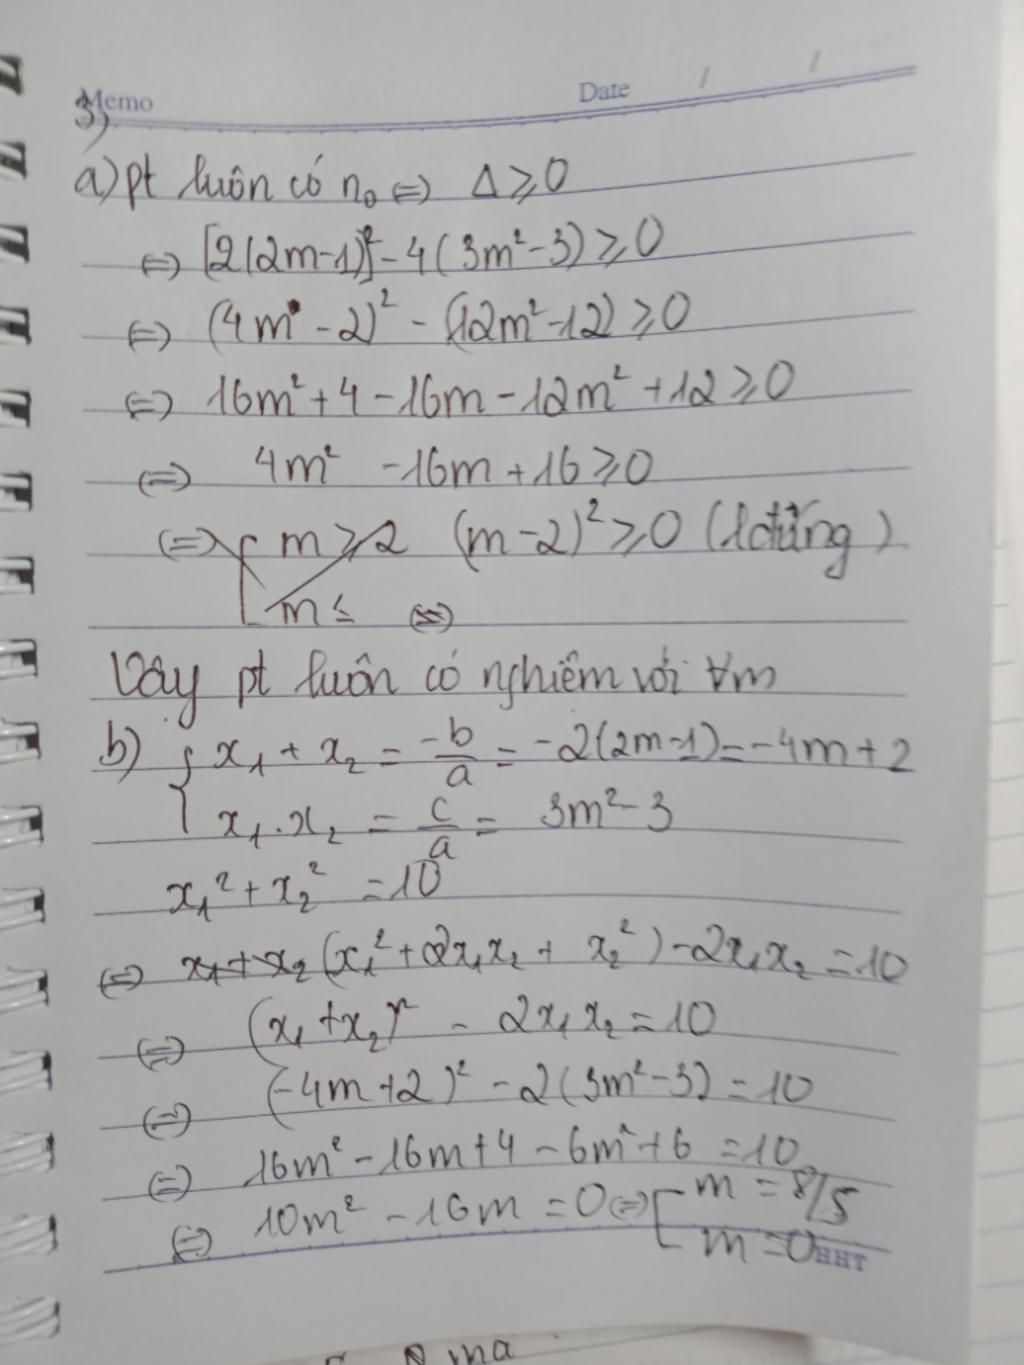 Memo Date / /
3)
a) pt luôn có n₀ ⇔ Δ ≥ 0
⇔ [2(2m-1)]² - 4(3m²-3) ≥ 0
⇔ (4m - 2)² - (12m²-12) ≥ 0
⇔ 16m² + 4 - 16m - 12m² + 12 ≥ 0
⇔ 4m² - 16m + 16 ≥ 0
⇔ m ≥ 2 (m-2)² ≥ 0 (lđ đúng)
m ≤ ⇔
Vậy pt luôn có nghiệm với ∀m
b) { x₁ + x₂ = -b/a = -2(2m-1) = -4m + 2
x₁.x₂ = c/a = 3m² - 3
x₁² + x₂² = 10
⇔ x₁ + x₂ (x₁² + 2x₁x₂ + x₂²) - 2x₁x₂ = 10
⇔ (x₁ + x₂)² - 2x₁x₂ = 10
⇔ (-4m + 2)² - 2(3m²-3) = 10
⇔ 16m² - 16m + 4 - 6m² + 6 = 10
⇔ 10m² - 16m = 0 ⇔ [ m = 8/5
m = 0 HHT